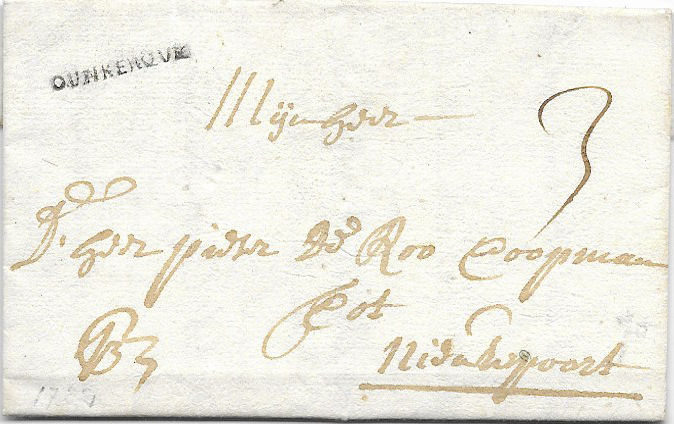 DUNKERQUE
Mijnheer
3
D' heer pieter De Roo Coopman
Tot
Nieuwpoort